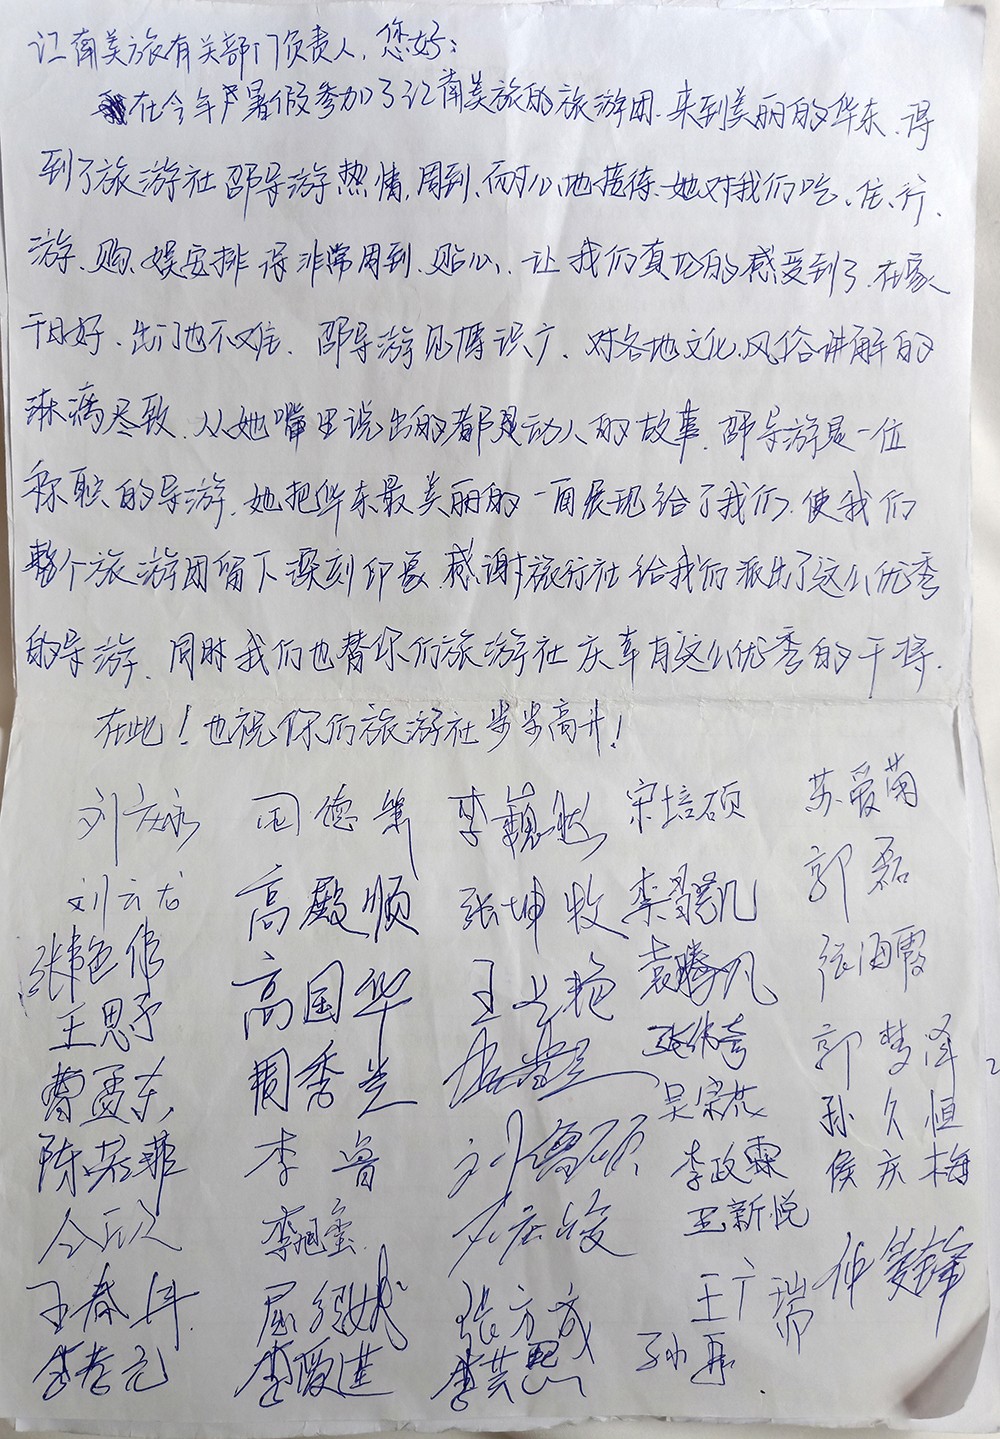 江南美旅有关部门负责人,您好:
在今年暑假参加了江南美旅的旅游团.来到美丽的华东.得
到了旅游社邵导游热情,周到、耐心地接待.她对我们吃、住、行、
游、购、娱安排得非常周到、贴心、让我们真切的感受到了.在家
千日好、出门也不难、邵导游见博识广、对各地文化、风俗讲解的
淋漓尽致.从她嘴里说出的都是动人的故事.邵导游是一位
称职的导游.她把华东最美丽的一面展现给了我们.使我们
整个旅游团留下深刻印象.感谢旅行社给我们派出了这么优秀
的导游.同时我们也替你们旅游社庆幸有这么优秀的干将.
在此!也祝你们旅游社步步高升!
刘 德 李 宋培硕 苏爱菊
刘云龙 高殿顺 张坤牧 郭磊
张艳伟 高国华 王 艳 袁腾凡 张海霞
王思予 周秀兰 郭梦泽
曹孟东 李鲁 刘鲁硕 吴宗芘 孙久恒
陈若菲 李旭蛮 李政霖 侯庆梅
王新悦
王春年 张方成 王广瑞 仲
李春元 李爱莲 李芸熙 孙磊